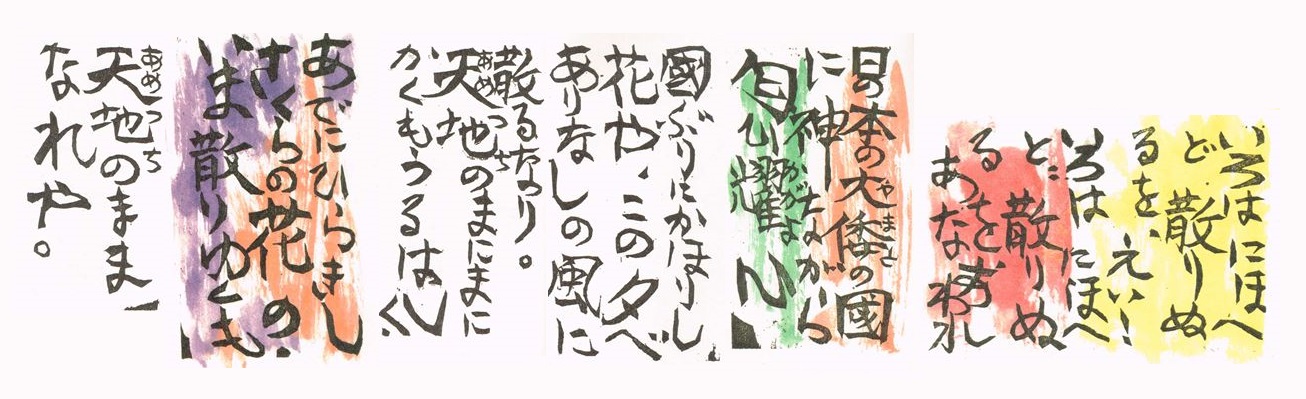 いろはにほへ
ど 散りぬ
るを、えい!
いろは にほへ
ど 散りぬ
るを
あな われ
日の本の大倭の國
やまと
に神ながら
かがよ
匂ひ耀
國ぶりにかほりし
花や、この夕べ
ありなしの風に
散るなり。
あめつち
天地のまにまに
かくもうるはしく
あでにひらきし
さくらの花の
いま散りゆくも
あめつち
天地のまま
なれや。